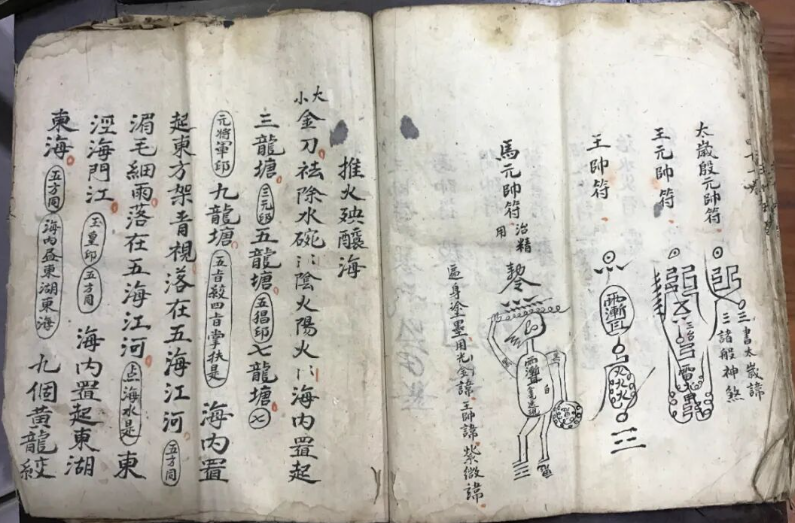 太歲殷元帥符
書太歲諱
三諸般神煞
王元帥符
王帥符
馬元帥符治精用
遍身塗墨用光金諱王帥諱紫微諱
推火殃釀海
大小金刀祛除水碗〻陰火陽火〻海內置起
三龍塘三元印五龍塘五猖印七龍塘七
元將軍印九龍塘五音殺四音掌扶是海內置
起東方架青視落在五海江河五方同
湄毛細雨落在五海江河海水是東
涇海門江玉皇印五方同海內置起東湖
東海五方同海內盡東湖東海九個黃龍絞